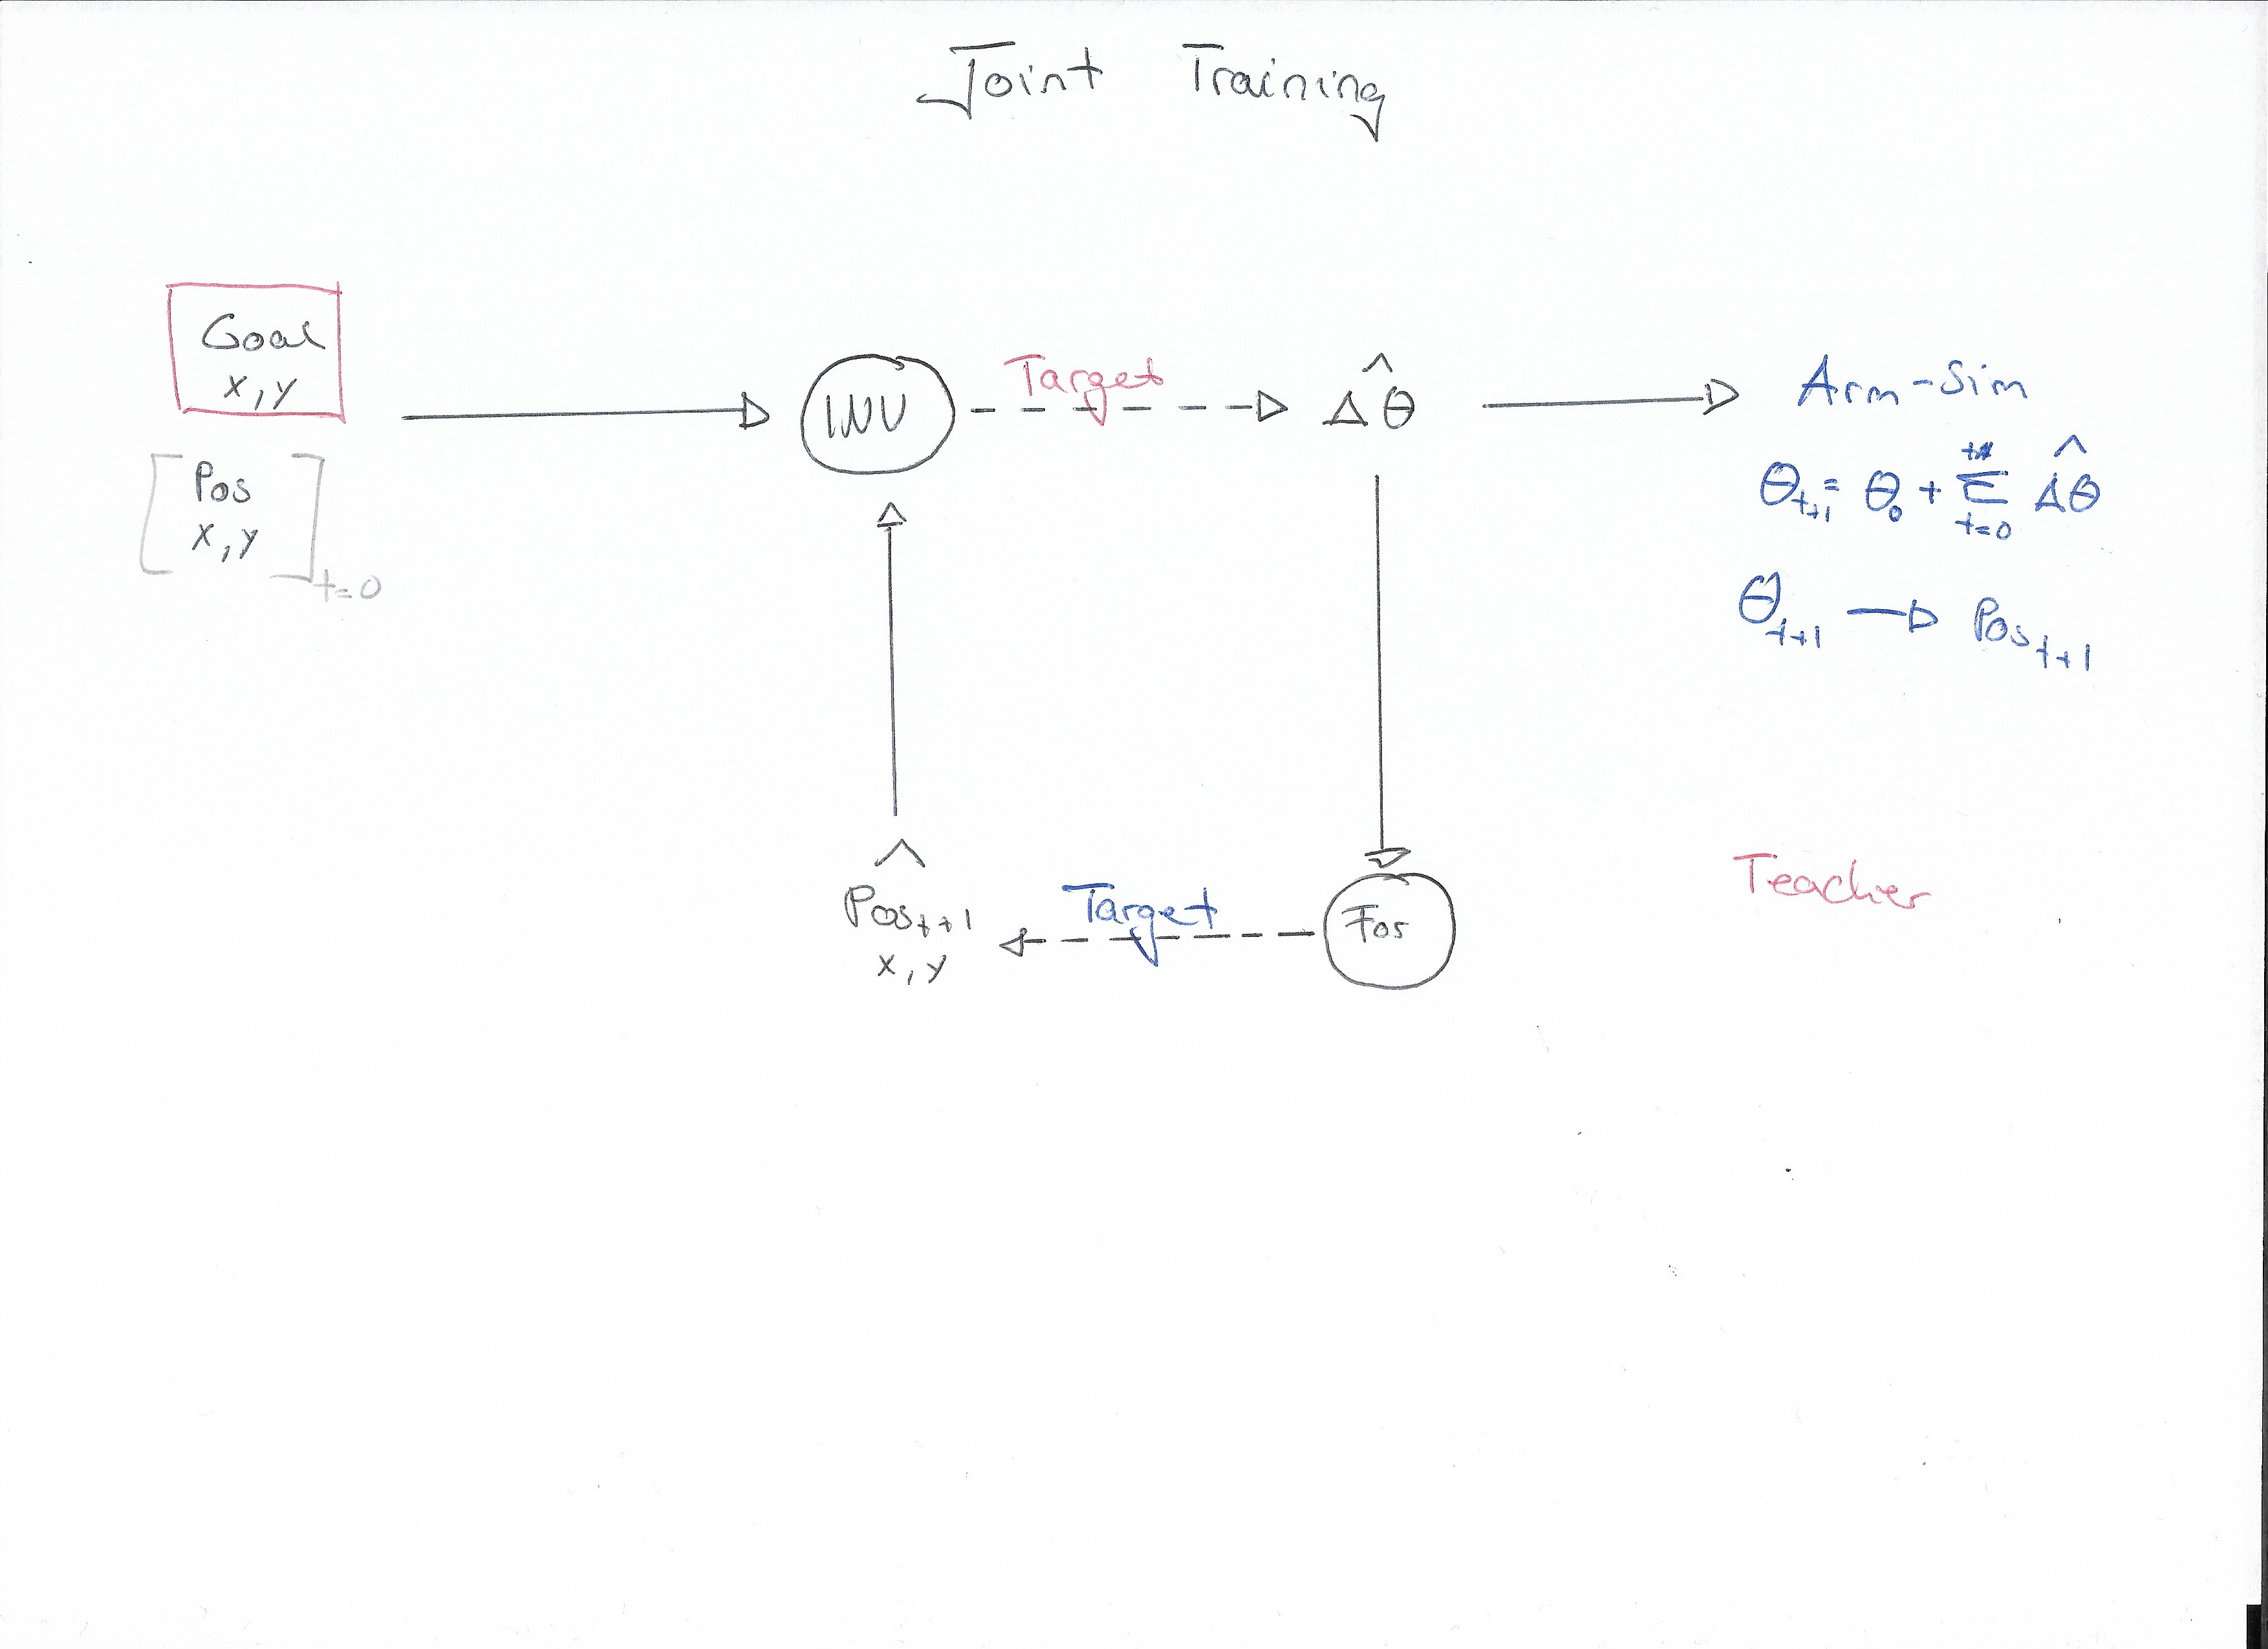 Joint Training
Goal
x, y
Pos
x, y
t=0
INV
Target
Δθ̂
Arm-Sim
θt+1 = θ0 + Σ t=0 Δθ̂
θt+1 → Post+1
Post+1
x, y
Target
For
Teacher